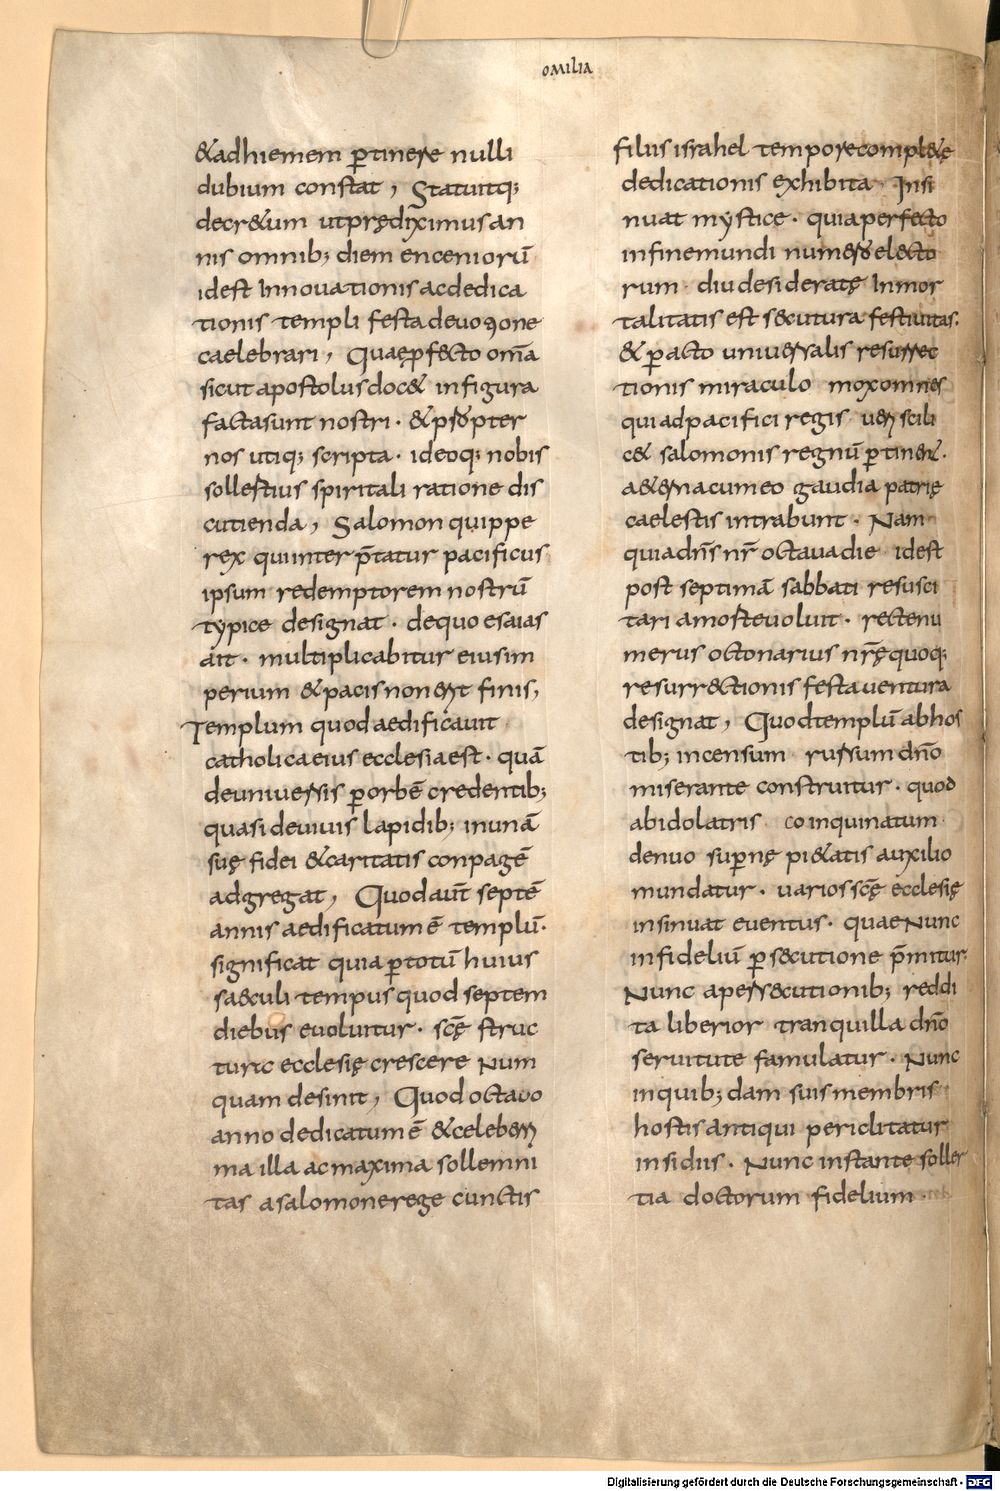 omilia
&adhiemem ꝑtinere nulli
dubium constat, Statuitq;
decr&um utprędiximus an
nis omnib; diem enceniorū
idest Innouationis acdedica
tionis templi festa deuotione
caelebrari, Quaeꝑfecto om̄a
sicut apostolus doc& infigura
factasunt nostri · &propter
nos utiq; scripta · ideoq; nobis
sollestius spiritali ratione dis
cutienda, Salomon quippe
rex quiinterp̄tatur pacificus
ipsum redemptorem nostrū
typice designat · dequo esaias
ait · multiplicabitur eiusim
perium &pacis non erit finis,
Templum quod aedificauit
catholica eius ecclesia est · quā
deuniuersis ꝑorbē credentib;
quasi deuiuis lapidib; inunā
suę fidei &caritatis conpagē
adgregat, Quod aūt septē
annis aedificatum ē templū ·
significat quia ꝑtotū huius
saeculi tempus quod septem
diebus euoluitur · scę̄ struc
turę ecclesię crescere Num
quam desinit, Quod octauo
anno dedicatum ē &celeber
ma illa acmaxima sollemni
tas asalomone rege cunctis
filiis israhel tempore compl&ę
dedicationis exhibita · Insi
nuat mystice · quia perfecto
infinemundi numero electo
rum diu desideratę Inmor
talitatis est secutura festiuitas.
&ꝑacto uniuersalis resurrec
tionis miraculo mox omnes
qui ad pacifici regis ueri scili
c& salomonis regnū ꝑtinent ·
a&erna cum eo gaudia patrię
caelestis intrabunt · Nam
quia dn̄s nr̄ octaua die idest
post septimā sabbati resusci
tari amorteuoluit · recte nu
merus octonarius nr̄ę quoq;
resurrectionis festa uentura
designat, Quod templū abhos
tib; incensum rursum dn̄o
miserante construitur · quod
abidolatris coinquinatum
denuo supernę pi&atis auxilio
mundatur · uarios scę̄ ecclesię
insinuat euentus · quae Nunc
infideliū ꝑsecutione p̄mitur·
Nunc apersecutionib; reddi
ta liberior tranquilla dn̄o
seruitute famulatur · Nunc
inquib;dam suis membris
hostis antiqui periclitatur
insidiis · Nunc instante soller
tia doctorum fidelium ·
Digitalisierung gefördert durch die Deutsche Forschungsgemeinschaft - DFG